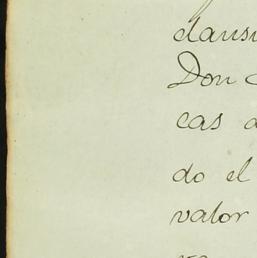 clausu
Don
cas a
do el
valor